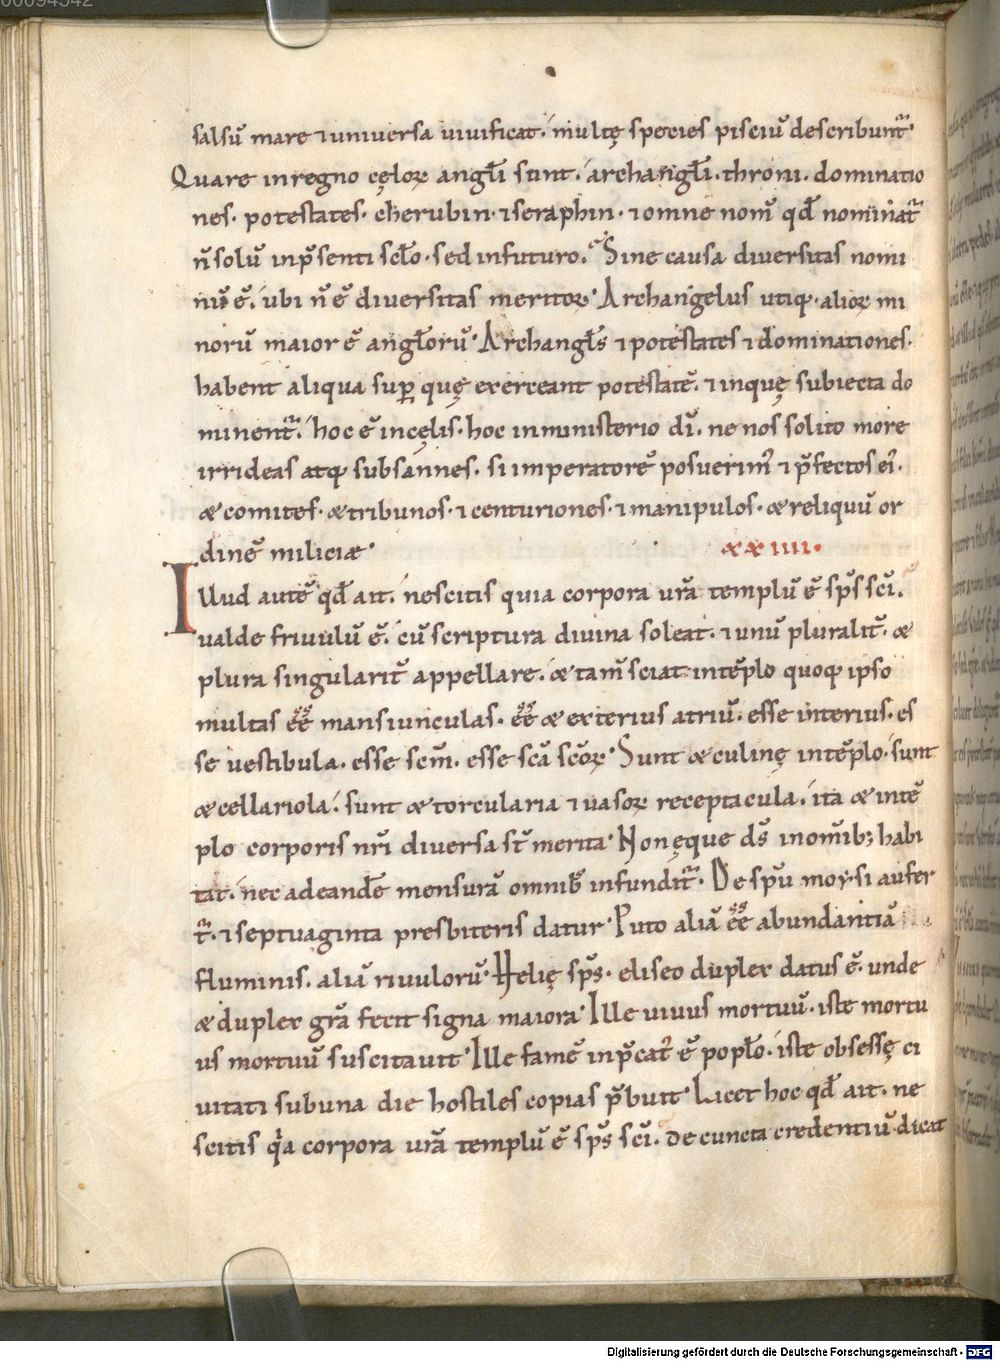 00094542
salsū mare ⁊ universa vivificat. multę species pisciū describunt᷑.
Quare in regno cęloꝝ angl̄i sunt. archangl̄i. throni. dominatio
nes. potestates. cherubin. ⁊ seraphin. ⁊ omne nom̄ qd̄ nominat᷑
n̄ solū in p̄senti scl̄o. sed in futuro. Sine causa diversitas nomi
nū ē. ubi n̄ ē diversitas meritoꝝ. Archangelus utiq; alioꝝ mi
norū maior ē angl̄orū. Archangl̄s ⁊ potestates ⁊ dominationes.
habent aliqua suꝑ quę exerceant potestatē. ⁊ in quę subiecta do
minent᷑. hoc ē in cęlis. hoc in ministerio dī. ne nos solito more
irrideas atq; subsannes. si imperatorē posuerim᷒ ⁊ p̄fectos ei᷒.
& comites. & tribunos. ⁊ centuriones. ⁊ manipulos. & reliquū or
dinē miliciæ. xxiiii.
Illud autē qd̄ ait. nescitis quia corpora vr̄a templū ē sp̄s sc̄i.
valde frivulū ē. cū scriptura divina soleat. ⁊ unū pluralit᷑. &
plura singularit᷑ appellare. & tam̄ sciat in tēplo quoq; ipso
multas ēē mansiunculas. ēē & exterius atriū. esse interius. es
se vestibula. esse scm̄. esse scā scōꝝ. Sunt & culinę in tēplo. sunt
& cellariola. sunt & torcularia ⁊ vasoꝝ receptacula. ita & in tē
plo corporis nr̄i diversa st̄ merita. Non ęque ds̄ in om̄ib; habi
tat. nec ad eandē mensurā omnib᷒ infundit᷑. De sp̄u moysi aufer
t᷑. ⁊ septuaginta presbiteris datur. Puto aliā ēē abundantiā
fluminis. aliā rivulorū. Helię sp̄s. eliseo duplex datus ē. unde
& duplex gr̄a fecit signa maiora. Ille vivus mortuū. iste mortu
us mortuū suscitavit. Ille famē inp̄cat᷒ ē popl̄o. iste obsessę ci
vitati sub una die hostiles copias p̄buit. Licet hoc qd̄ ait. ne
scitis qͣa corpora vr̄a templū ē sp̄s sc̄i. de cuncta credentiū dicat
Digitalisierung gefördert durch die Deutsche Forschungsgemeinschaft - DFG